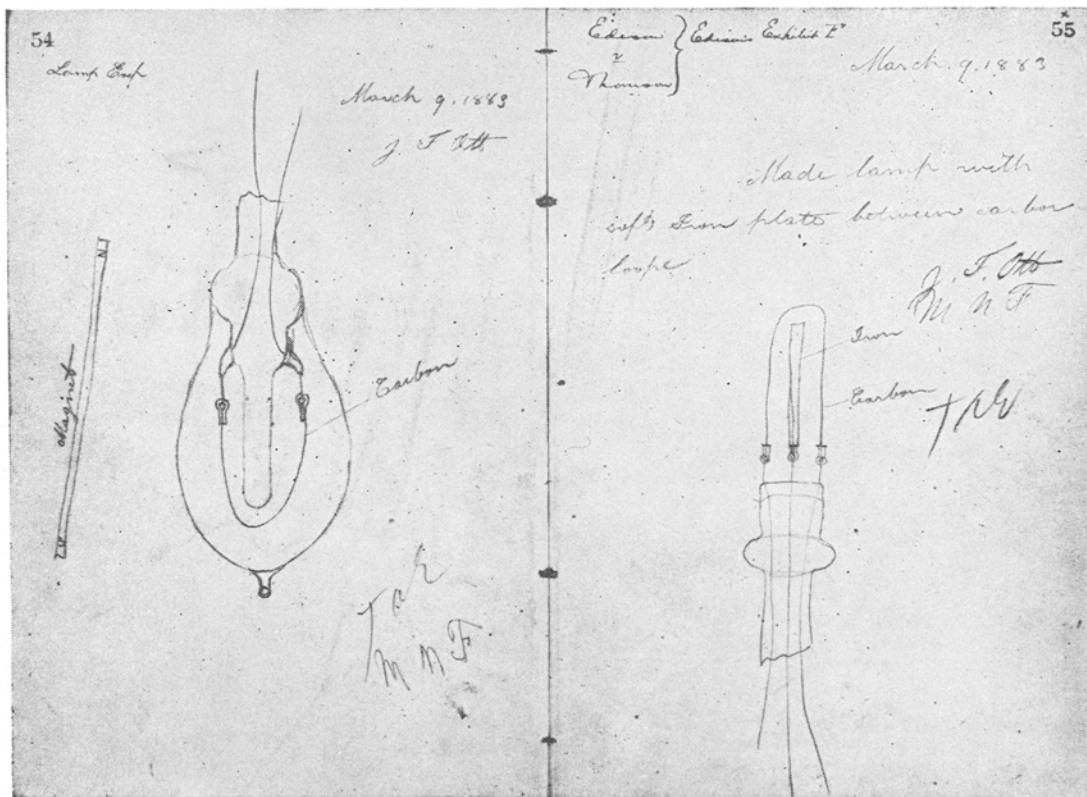 54
Lamp Exp
March 9. 1883
J. F. Ott
N
Magnet
S
Carbon
TAE
M N F
55
Edison
v
Thomson
Edison's Exhibit F
March. 9. 1883
Made lamp with
soft Iron plate between carbon
loope
J. F. Ott
M N F
Iron
Carbon
TAE